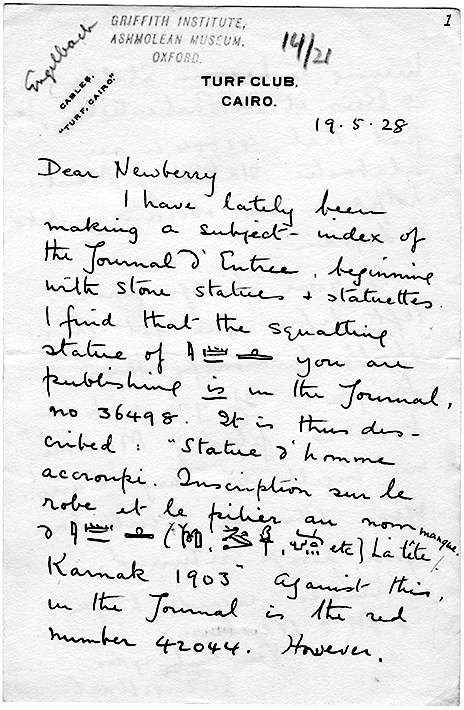 1
GRIFFITH INSTITUTE,
ASHMOLEAN MUSEUM,
OXFORD.
14/21
Engelbach
CABLES,
"TURF, CAIRO"
TURF CLUB,
CAIRO.
19.5.28
Dear Newberry
I have lately been
making a subject-index of
the Journal d'Entree, beginning
with stone statues + statuettes.
I find that the squatting
statue of you are
publishing is in the Journal,
no 36498. It is thus des-
cribed: "Statue d'homme
accroupi. Inscription sur le
robe et le pilier au nom
d' ( , , etc) La tête manque.
Karnak 1903" Against this,
in the Journal is the red
number 42044. However,